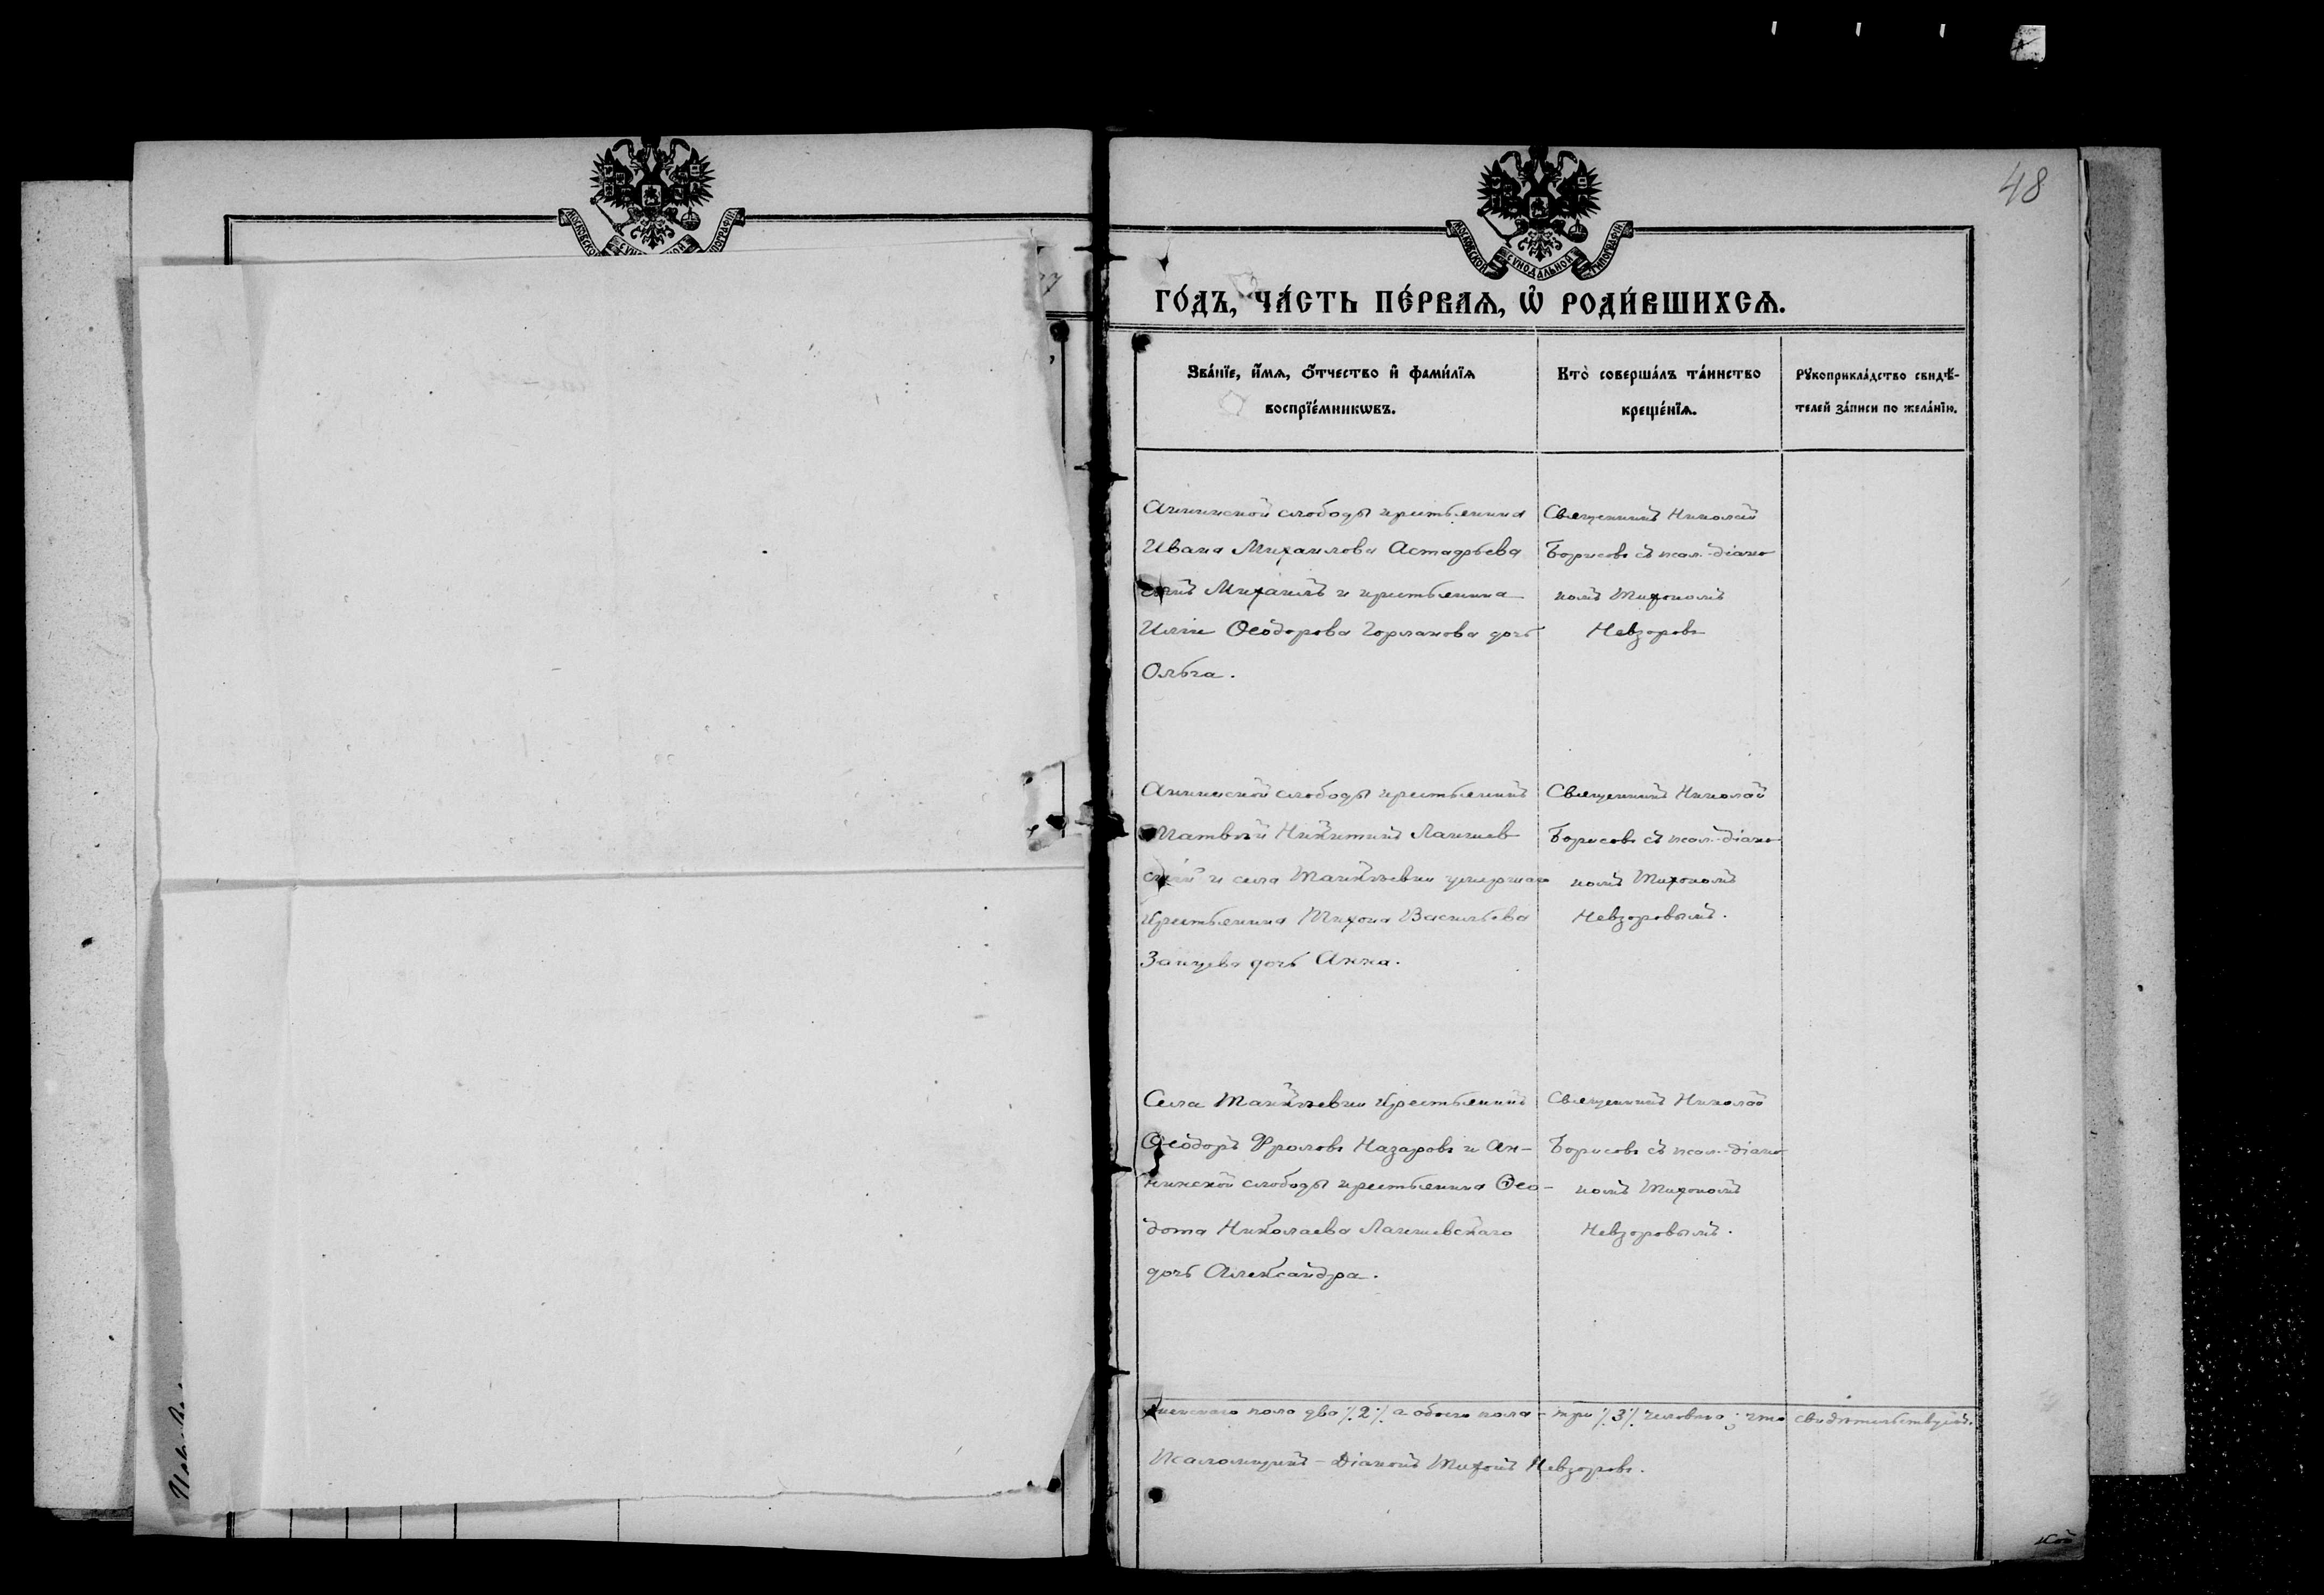 48
МОСКОВСКОЙ СѴНОДАЛЬНОЙ ТИПОГРАФІИ
МОСКОВСКОЙ СѴНОДАЛЬНОЙ ТИПОГРАФІИ
ГО́ДЪ, ЧА́СТЬ ПЕ́РВАѦ, Ѽ РОДИ́ВШИХСѦ.
Зва́нїе, и҆́мѧ, ѻ҆́тчество и҆ фами́лїѧ
воспрїе́мникѡвъ.
Кто̀ соверша́лъ та́инство
креще́нїѧ.
Рꙋкоприкла́дство свидѣ́-
телей за́писи по жела́нїю.
Аннинской слободы крестьянина
Ивана Михаилова Астафьева
сынъ Михаилъ и крестьянина
Иліи Ѳеодорова Горланова дочь
Ольга.
Священникъ Николай
Борисовъ съ псал.-діако-
номъ Тихономъ
Невзоровъ
Аннинской слободы крестьянинъ
Матвѣй Никитинъ Лаишев
скій и села умершаго
крестьянина Тихона Васильева
Зайцева дочь Анна.
Священникъ Николай
Борисовъ съ псал.-діако-
номъ Тихономъ
Невзоровымъ.
Села крестьянинъ
Ѳеодоръ Фроловъ Назаровъ и Ан-
нинской слободы крестьянина Ѳео-
дота Николаева Лаишевскаго
дочь Александра.
Священникъ Николай
Борисовъ съ псал.-діако-
номъ Тихономъ
Невзоровымъ.
женскаго пола два /.2./. а обоего пола - три /.3/. человѣка; что свидѣтельствуютъ.
Псаломщикъ - Діаконъ Тихонъ Невзоровъ.